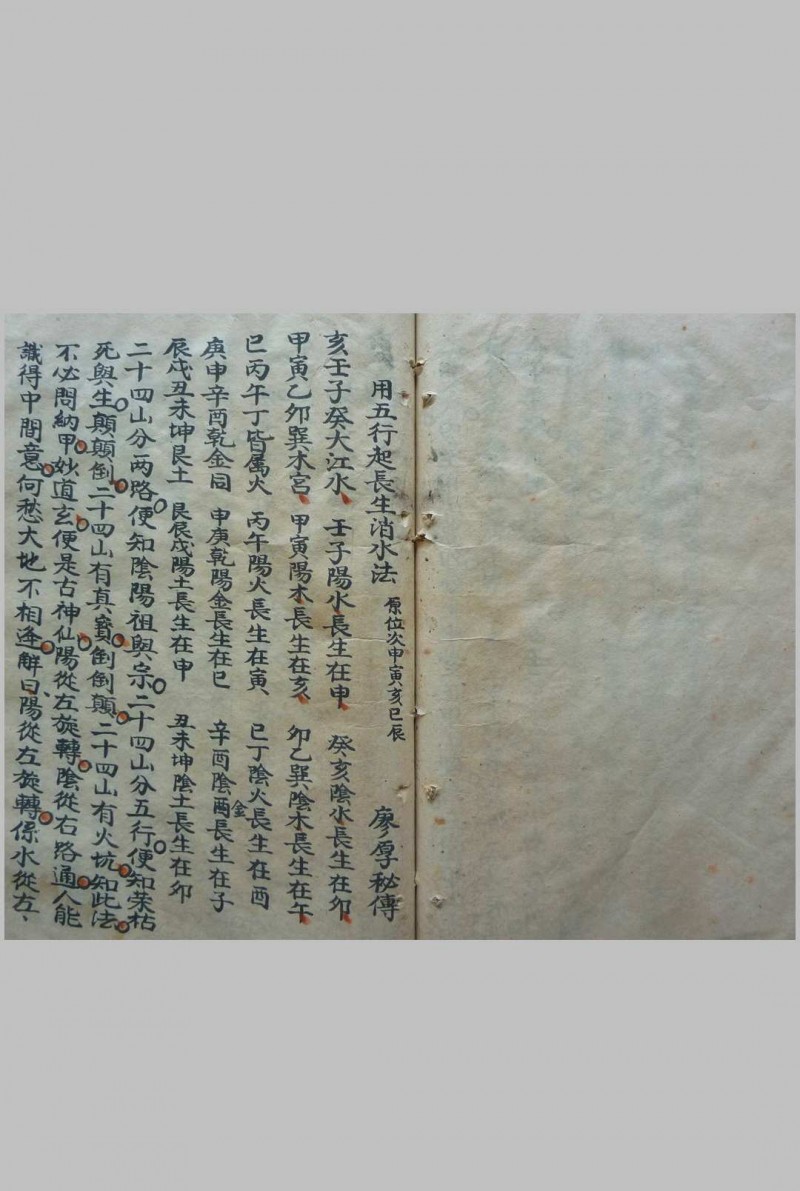 用五行起長生消水法 原位次申寅亥巳辰 廖厚秘傳
亥壬子癸大江水、壬子陽水長生在申、癸亥陰水長生在卯、
甲寅乙卯巽木宮、甲寅陽木長生在亥、卯乙巽陰木長生在午、
巳丙午丁皆属火 丙午陽火長生在寅、巳丁陰火長生在酉
庚申辛酉乾金同 申庚乾陽金長生在巳 辛酉陰酉金長生在子
辰戌丑未坤艮土 艮辰戌陽土長生在申 丑未坤陰土長生在卯
二十四山分两路○便知陰陽祖與宗○二十四山分五行○便知荣枯
死與生○顛顛倒○二十四山有真寶○倒倒顛○二十四山有火坑○知此法○
不必問納甲○妙道玄○便是古神仙○陽從左旋轉○陰從右路通○人能
識得中間意○何愁大地不相逢○解曰、陽從左旋轉○係水從左、